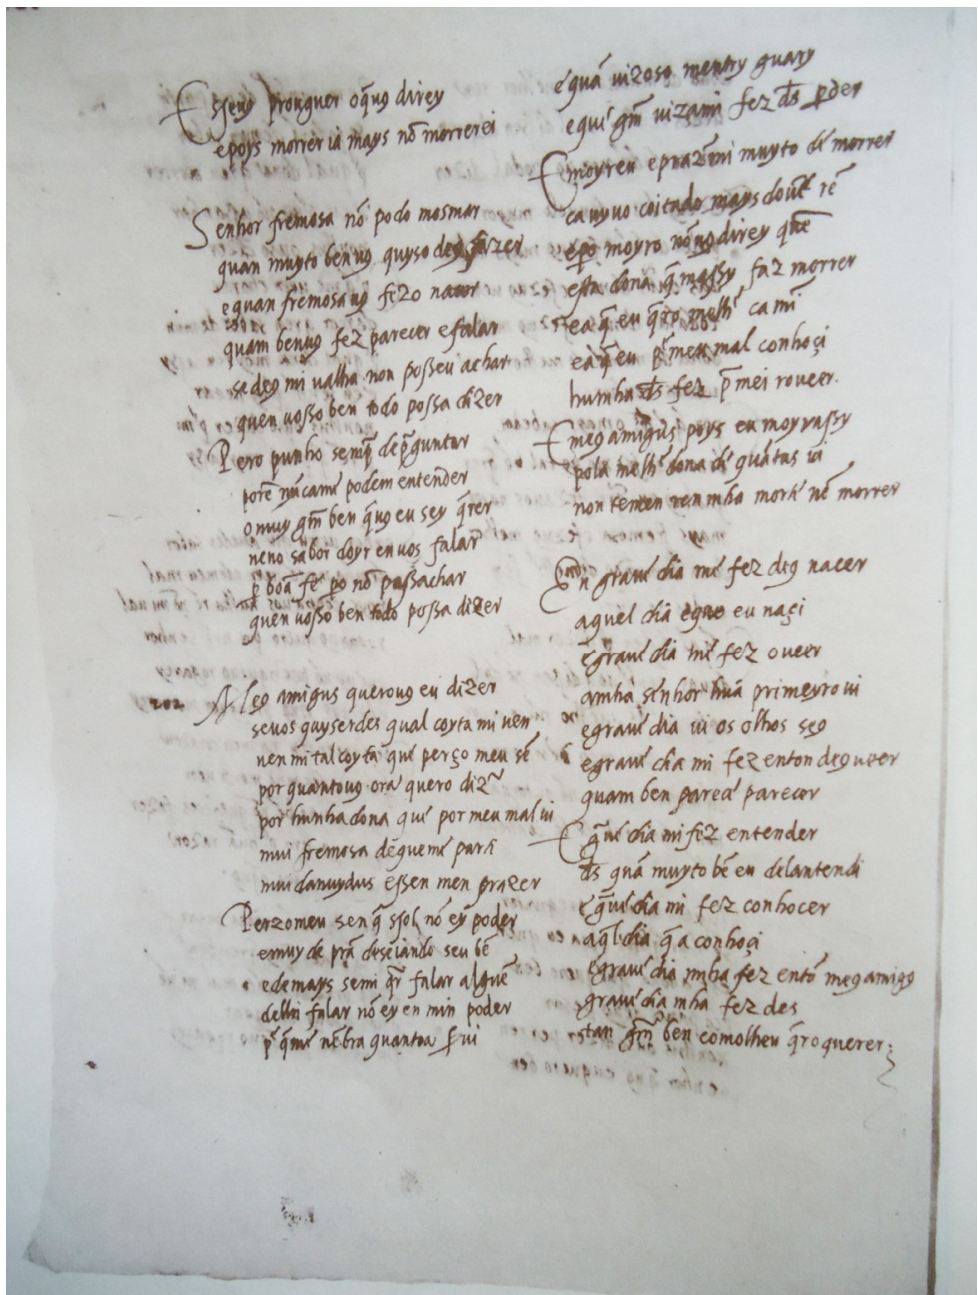 E sseuꝯ prouguer o q̄uꝯ direy
epoys morrer ia mays nō morrerei
Senhor fremosa nō podo mosmar
quan muyto benuꝯ quyso deꝯ fazer
equan fremosa uꝯ fezo nacer
quam benuꝯ fez parecer efalar
sedeꝯ mi ualha non posseu achar
quen uosso ben todo possa dizer
Pero punho semp̄ dep̄guntar
porē nūcame podem entender
omuy gm̄ ben q̄uꝯ eu sey q̄rer
neno sabor doyr enuos falar
ꝑ boā fe ꝑo nō possachar
quen uosso ben todo possa dizer
202 A Meꝯ amigus querouꝯ eu dizer
seuos quyserdes qual coyta mi uen
uen mi tal coyta que perço meu sē
por quantouꝯ ora quero diz̄
por hunha dona que por meu mal ui
mui fremosa dequeme parti
mui danuydus essen meu prazer
Perzomeu sen q̄ sol nō ey poder
emuy de prā deseiando seu bē
edemays semi q̄r falar alguē
delhi falar nō ey en min poder
p̄ q̄me nēbra quantoa ꝑui
equā uizoso mentry guary
equi gm̄ uizami fez d̄s ꝑder
E moyreu eprazemi muyto de morrer
ca uyuo coitado mays doutʳ rē
epo moyro nōuꝯ direy quē
esta dona q̄ massy faz morrer
ea q̄ eu q̄ro melhʳ ca mī
ea q̄ eu p̄ meu mal conhoçi
hunha d̄s fez p̄mei roueer.
E meꝯ amigus poys eu moyrassy
pola melhʳ dona de quātas ia
non temen ren mha morte nē morrer
En graue dia me fez deꝯ nacer
aquel dia eque eu naçi
egraue dia me fez oueer
amha senhor hua primeyro ui
egraue dia ui os olhos seꝯ
egraue dia mi fez enton deꝯ ueer
quam ben parece parecer
E g̃ue dia mi fez entender
d̄s quā muyto bē eu delantendi
eg̃ue dia mi fez conhocer
aq̄l dia q̄ a conhoçi
egraue dia mha fez entō meꝯ amigꝯ
graue dia mha fez des
tan gm̄ ben comolheu q̄ro querer